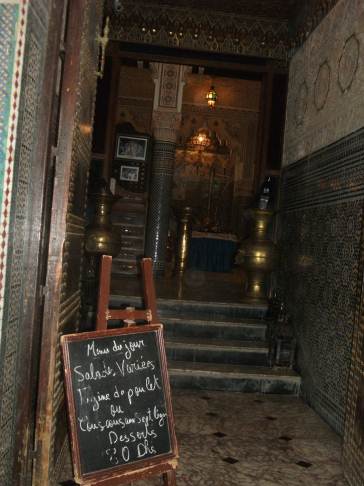 Menu du jour
Salade Variées
Tigine de poulet
ou
Couscous Sept légu
Desserts
0 Dhs